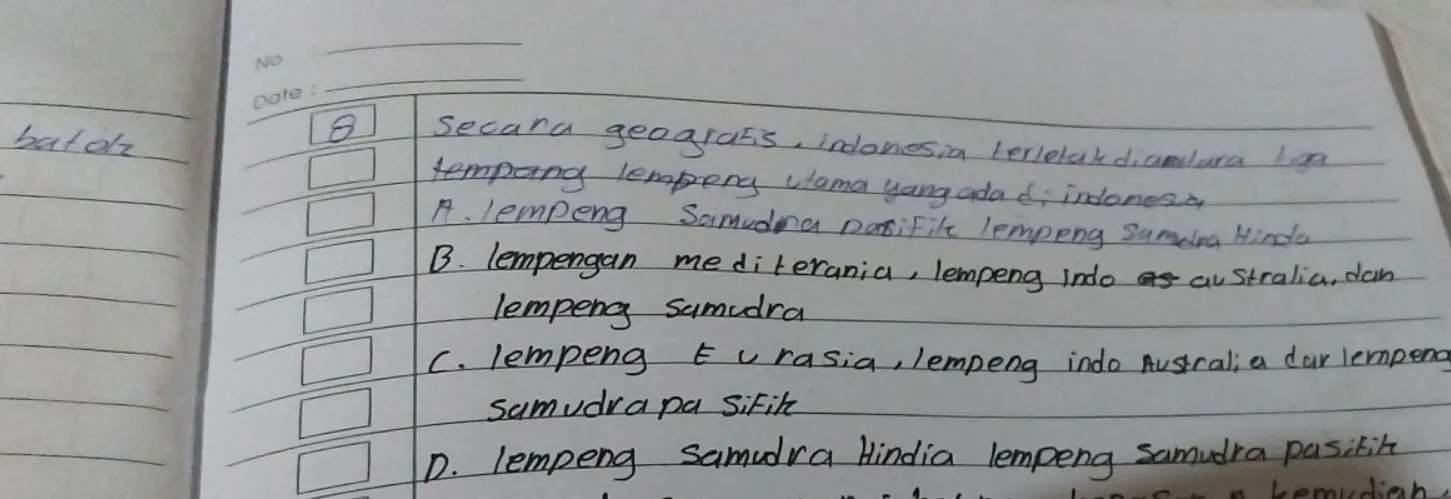 No :
Date :
batolz
8 Secara geografis, indonesia terletak diantara tiga
tempang lempeng utama yang ada di indonesia
A. lempeng Samudra pasifik lempeng Samudra Hindo
B. lempengan mediterania, lempeng indo as australia, dan
lempeng Samudra
C. lempeng Eurasia, lempeng indo Australia dar lempeng
samudra pasifik
D. lempeng samudra Hindia lempeng samudra pasifik
kemudian